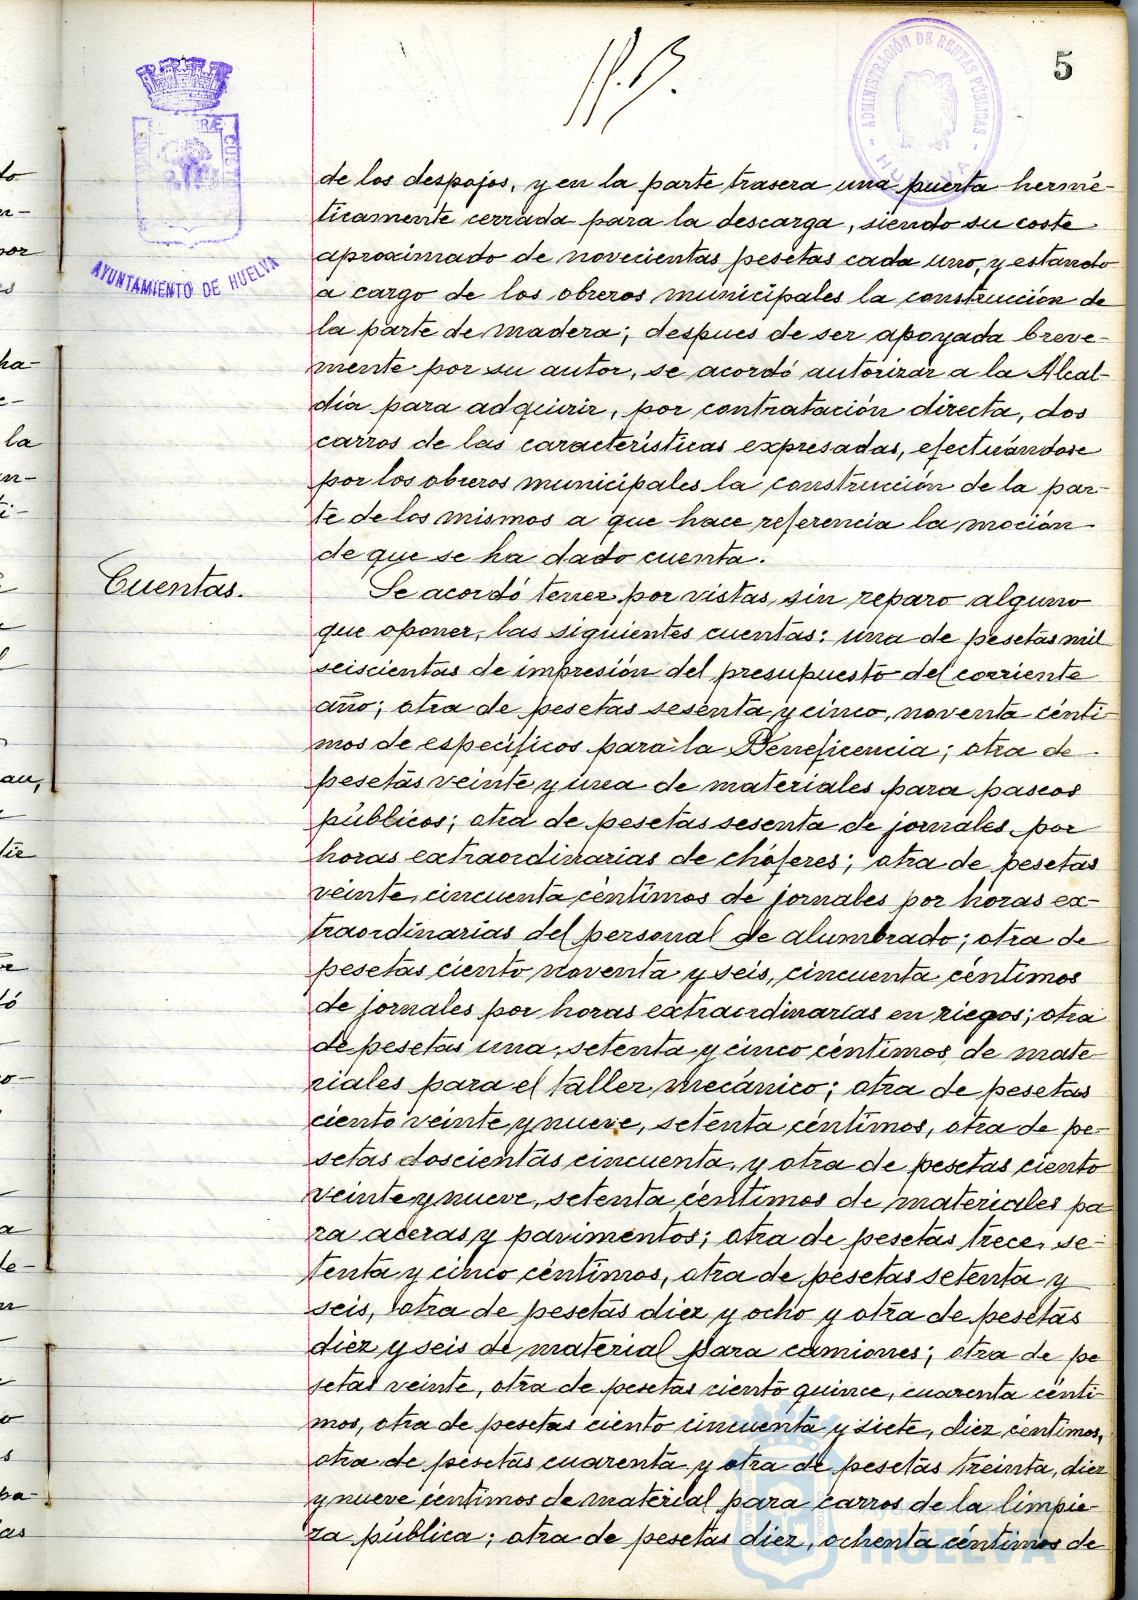 5
ADMINISTRACIÓN DE RENTAS PÚBLICAS
AYUNTAMIENTO DE HUELVA
de los despojos, y en la parte trasera una puerta hermé-
ticamente cerrada para la descarga, siendo su coste
aproximado de novecientas pesetas cada uno, y estando
a cargo de los obreros municipales la construcción de
la parte de madera; despues de ser apoyada breve-
mente por su autor, se acordó autorizar a la Alcal-
día para adquirir, por contratación directa, dos
carros de las características expresadas, efectuándose
por los obreros municipales la construcción de la par-
te de los mismos a que hace referencia la moción
de que se ha dado cuenta.
Cuentas.
Se acordó tener por vistas, sin reparo alguno
que oponer, las siguientes cuentas: una de pesetas mil
seiscientas de impresión del presupuesto del corriente
año; otra de pesetas sesenta y cinco, noventa cénti-
mos de específicos para la Beneficencia; otra de
pesetas veinte y una de materiales para paseos
públicos; otra de pesetas sesenta de jornales por
horas extraordinarias de chóferes; otra de pesetas
veinte, cincuenta céntimos de jornales por horas ex-
traordinarias del personal de alumbrado; otra de
pesetas ciento noventa y seis, cincuenta céntimos
de jornales por horas extraordinarias en riegos; otra
de pesetas una, setenta y cinco céntimos de mate-
riales para el taller mecánico; otra de pesetas
ciento veinte y nueve, setenta céntimos, otra de pe-
setas doscientas cincuenta, y otra de pesetas ciento
veinte y nueve, setenta céntimos de materiales pa-
ra aceras y pavimentos; otra de pesetas trece, se-
tenta y cinco céntimos, otra de pesetas setenta y
seis, otra de pesetas diez y ocho y otra de pesetas
diez y seis de material para camiones; otra de pe
setas veinte, otra de pesetas ciento quince, cuarenta cénti-
mos, otra de pesetas ciento cincuenta y siete, diez céntimos,
otra de pesetas cuarenta y otra de pesetas treinta, diez
y nueve céntimos de material para carros de la limpie-
za pública; otra de pesetas diez, ochenta céntimos de
HUELVA